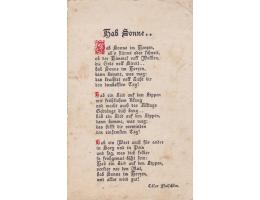 Hab Sonne..
Hab Sonne im Herzen,
ob's stürmt oder schneit,
ob der Himmel voll Wolken,
die Erde voll Streit..
hab Sonne im Herzen,
dann komme, was mag:
das leuchtet voll Licht dir
den dunkelsten Tag!
Hab ein Lied auf den Lippen
mit fröhlichem Klang
und macht auch des Alltags
Gedränge dich bang..
hab ein Lied auf den Lippen,
dann komme, was mag:
das hilft dir verwinden
den einsamsten Tag!
Hab ein Wort auch für andre
in Sorg und in Pein
und sag, was dich selber
so frohgemut läßt sein:
Hab ein Lied auf den Lippen,
verlier nie den Mut,
hab Sonne im Herzen,
und alles wird gut!
Cäsar Flaischlen.